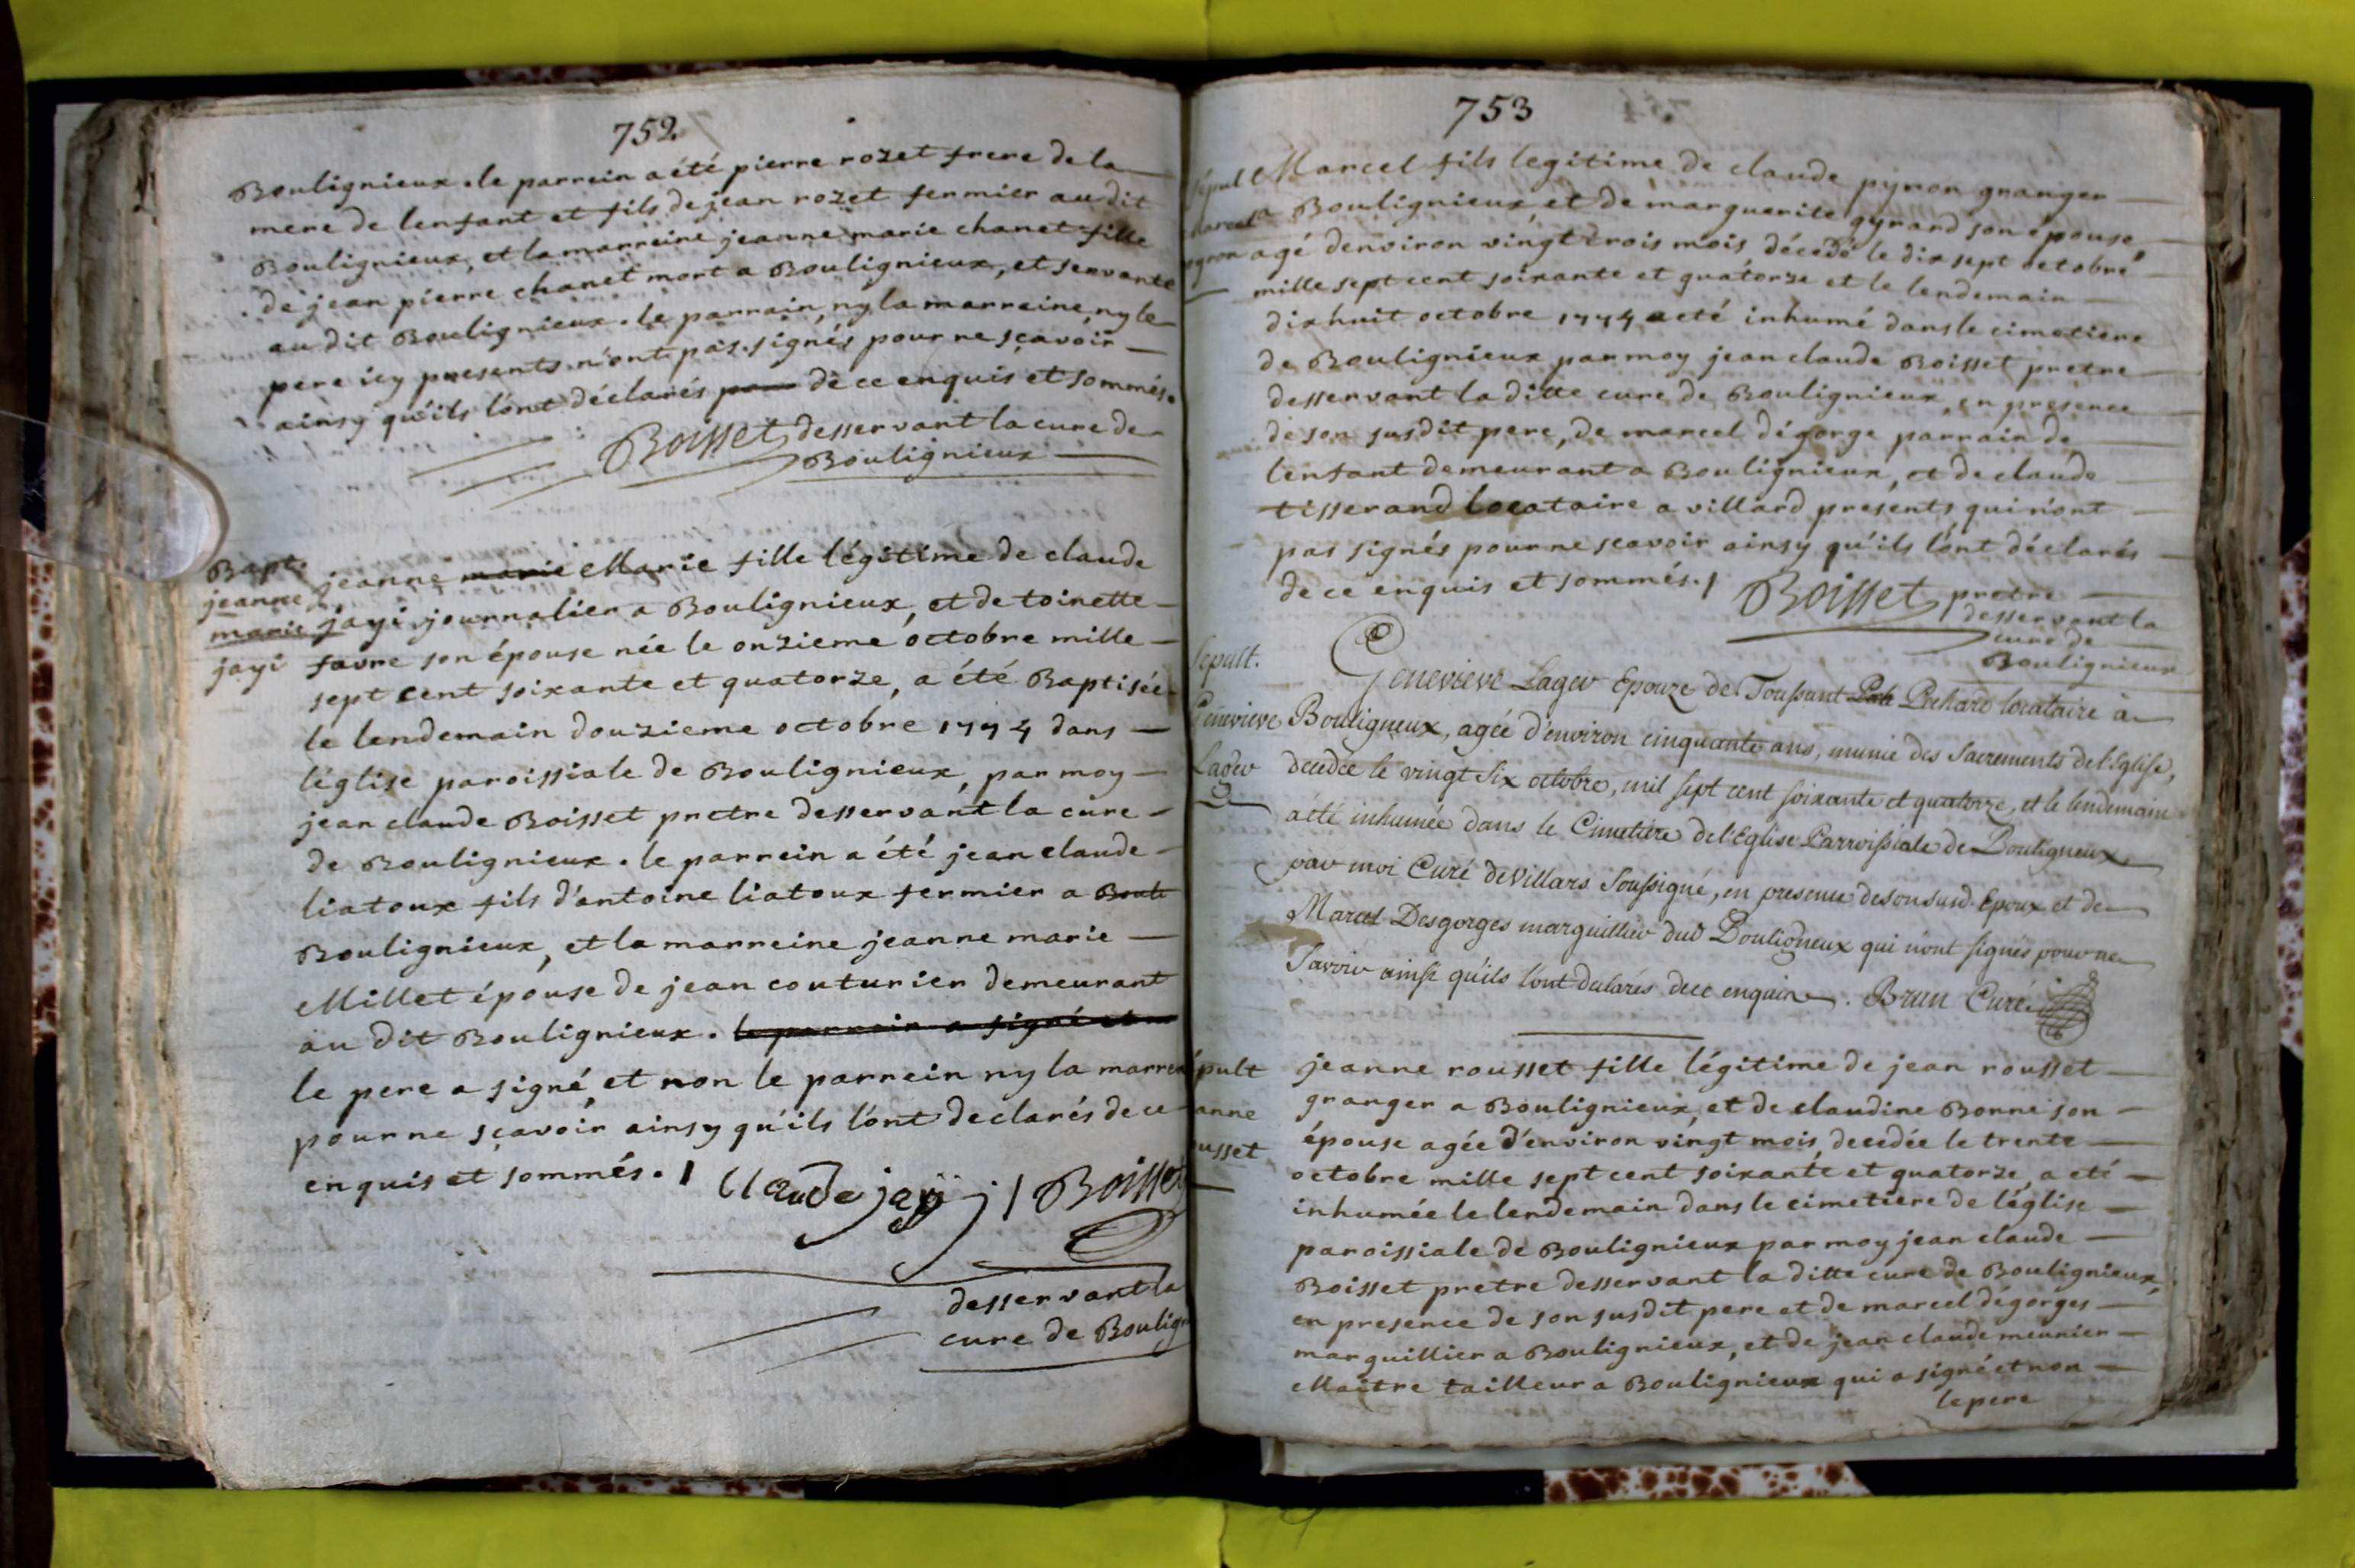 752
Boulignieux. le parrein a été pierre rozet frere de la
mere de lenfant et fils de jean rozet fermier au dit
Boulignieux, et la marreine jeanne marie chanet fille
de jean pierre chanet mort a Boulignieux, et servante
au dit Boulignieux. le parrain, ny la marraine, ny le
pere icy presents n'ont pas signés pour ne sçavoir
ainsy qu'ils l'ont déclarés de ce enquis et sommés.
Boisset desservant la cure de
Boulignieux
Bapt.
jeanne
marie
jayi
jeanne marie Marie fille légitime de claude
jayi journalier a Boulignieux, et de toinette
favre son épouse née le onzieme octobre mille
sept cent soixante et quatorze, a été Baptisée
le lendemain douzieme octobre 1774 dans
l'église paroissiale de Boulignieux, par moy
jean claude Boisset pretre desservant la cure
de Boulignieux. le parrein a été jean claude
liatoux fils d'antoine liatoux fermier a Bouli
Boulignieux, et la marreine jeanne marie
Millet épouse de jean couturier demeurant
au dit Boulignieux. le parrein a signé et
le pere a signé, et non le parrein ny la marrei
pour ne sçavoir ainsy qu'ils l'ont declarés de ce
enquis et sommés. Claude jayi Boisset
desservant la
cure de Boulign
753
sépult
marcel
pyron
Marcel fils legitime de claude pyron granger
a Boulignieux, et de marguerite gyrard son épouse,
agé denviron vingt trois mois, décédé le dix sept octobre
mille sept cent soixante et quatorze et le lendemain
dixhuit octobre 1774 a eté inhumé dans le cimetiere
de Boulignieux par moy jean claude Boisset pretre
desservant la ditte cure de Boulignieux, en presence
de son susdit pere, de marcel dégorge parrain de
l'enfant demeurant a Boulignieux, et de claude
tisserand locataire a villard presents, qui n'ont
pas signés pour ne scavoir ainsy qu'ils l'ont déclarés
de ce enquis et sommés. Boisset pretre
desservant la
cure de
Boulignieux
Sepult.
Genevieve
Lager
Genevieve Lager Epouze de Toussaint Pochard locataire à
Bouligneux, agée d'environ cinquante ans, munie des Sacrements de l'Eglise,
decedée le vingt six octobre, mil sept cent soixante et quatorze, et le lendemain
a été inhumée dans le Cimetière de l'Eglise Parroissiale de Bouligneux
par moi Curé de Villars Soussigné, en presence de son susd. Epoux et de
Marcel Desgorges marguillier dud Bouligneux qui n'ont signés pour ne
Savoir ainsi qu'ils l'ont declarés de ce enquis. Brun Curé
épult
anne
usset
jeanne rousset fille légitime de jean rousset
granger a Boulignieux, et de claudine Bonne son
épouse agée d'environ vingt mois, decedée le trente
octobre mille sept cent soixante et quatorze, a eté
inhumée le lendemain dans le cimetiere de l'église
paroissiale de Boulignieux par moy jean claude
Boisset pretre desservant la ditte cure de Boulignieux,
en presence de son susdit pere et de marcel dégorges
marguillier a Boulignieux, et de jean claude meunier
Maitre tailleur a Boulignieux qui a signé et non
le pere